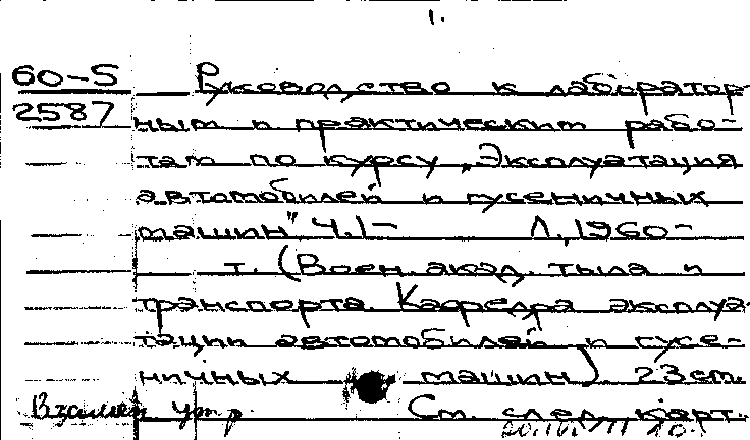 1.
60-5
2587
Руководство к лаборатор-
ным и практическим рабо-
там по курсу „Эксплуатация
автомобилей и гусеничных
машин" Ч.1- Л., 1960-
т. (Воен. акад. тыла и
транспорта. Кафедра эксплуа-
тации автомобилей и гусе-
ничных машин) 23 см.
Взамен утр.
См. след. карт.